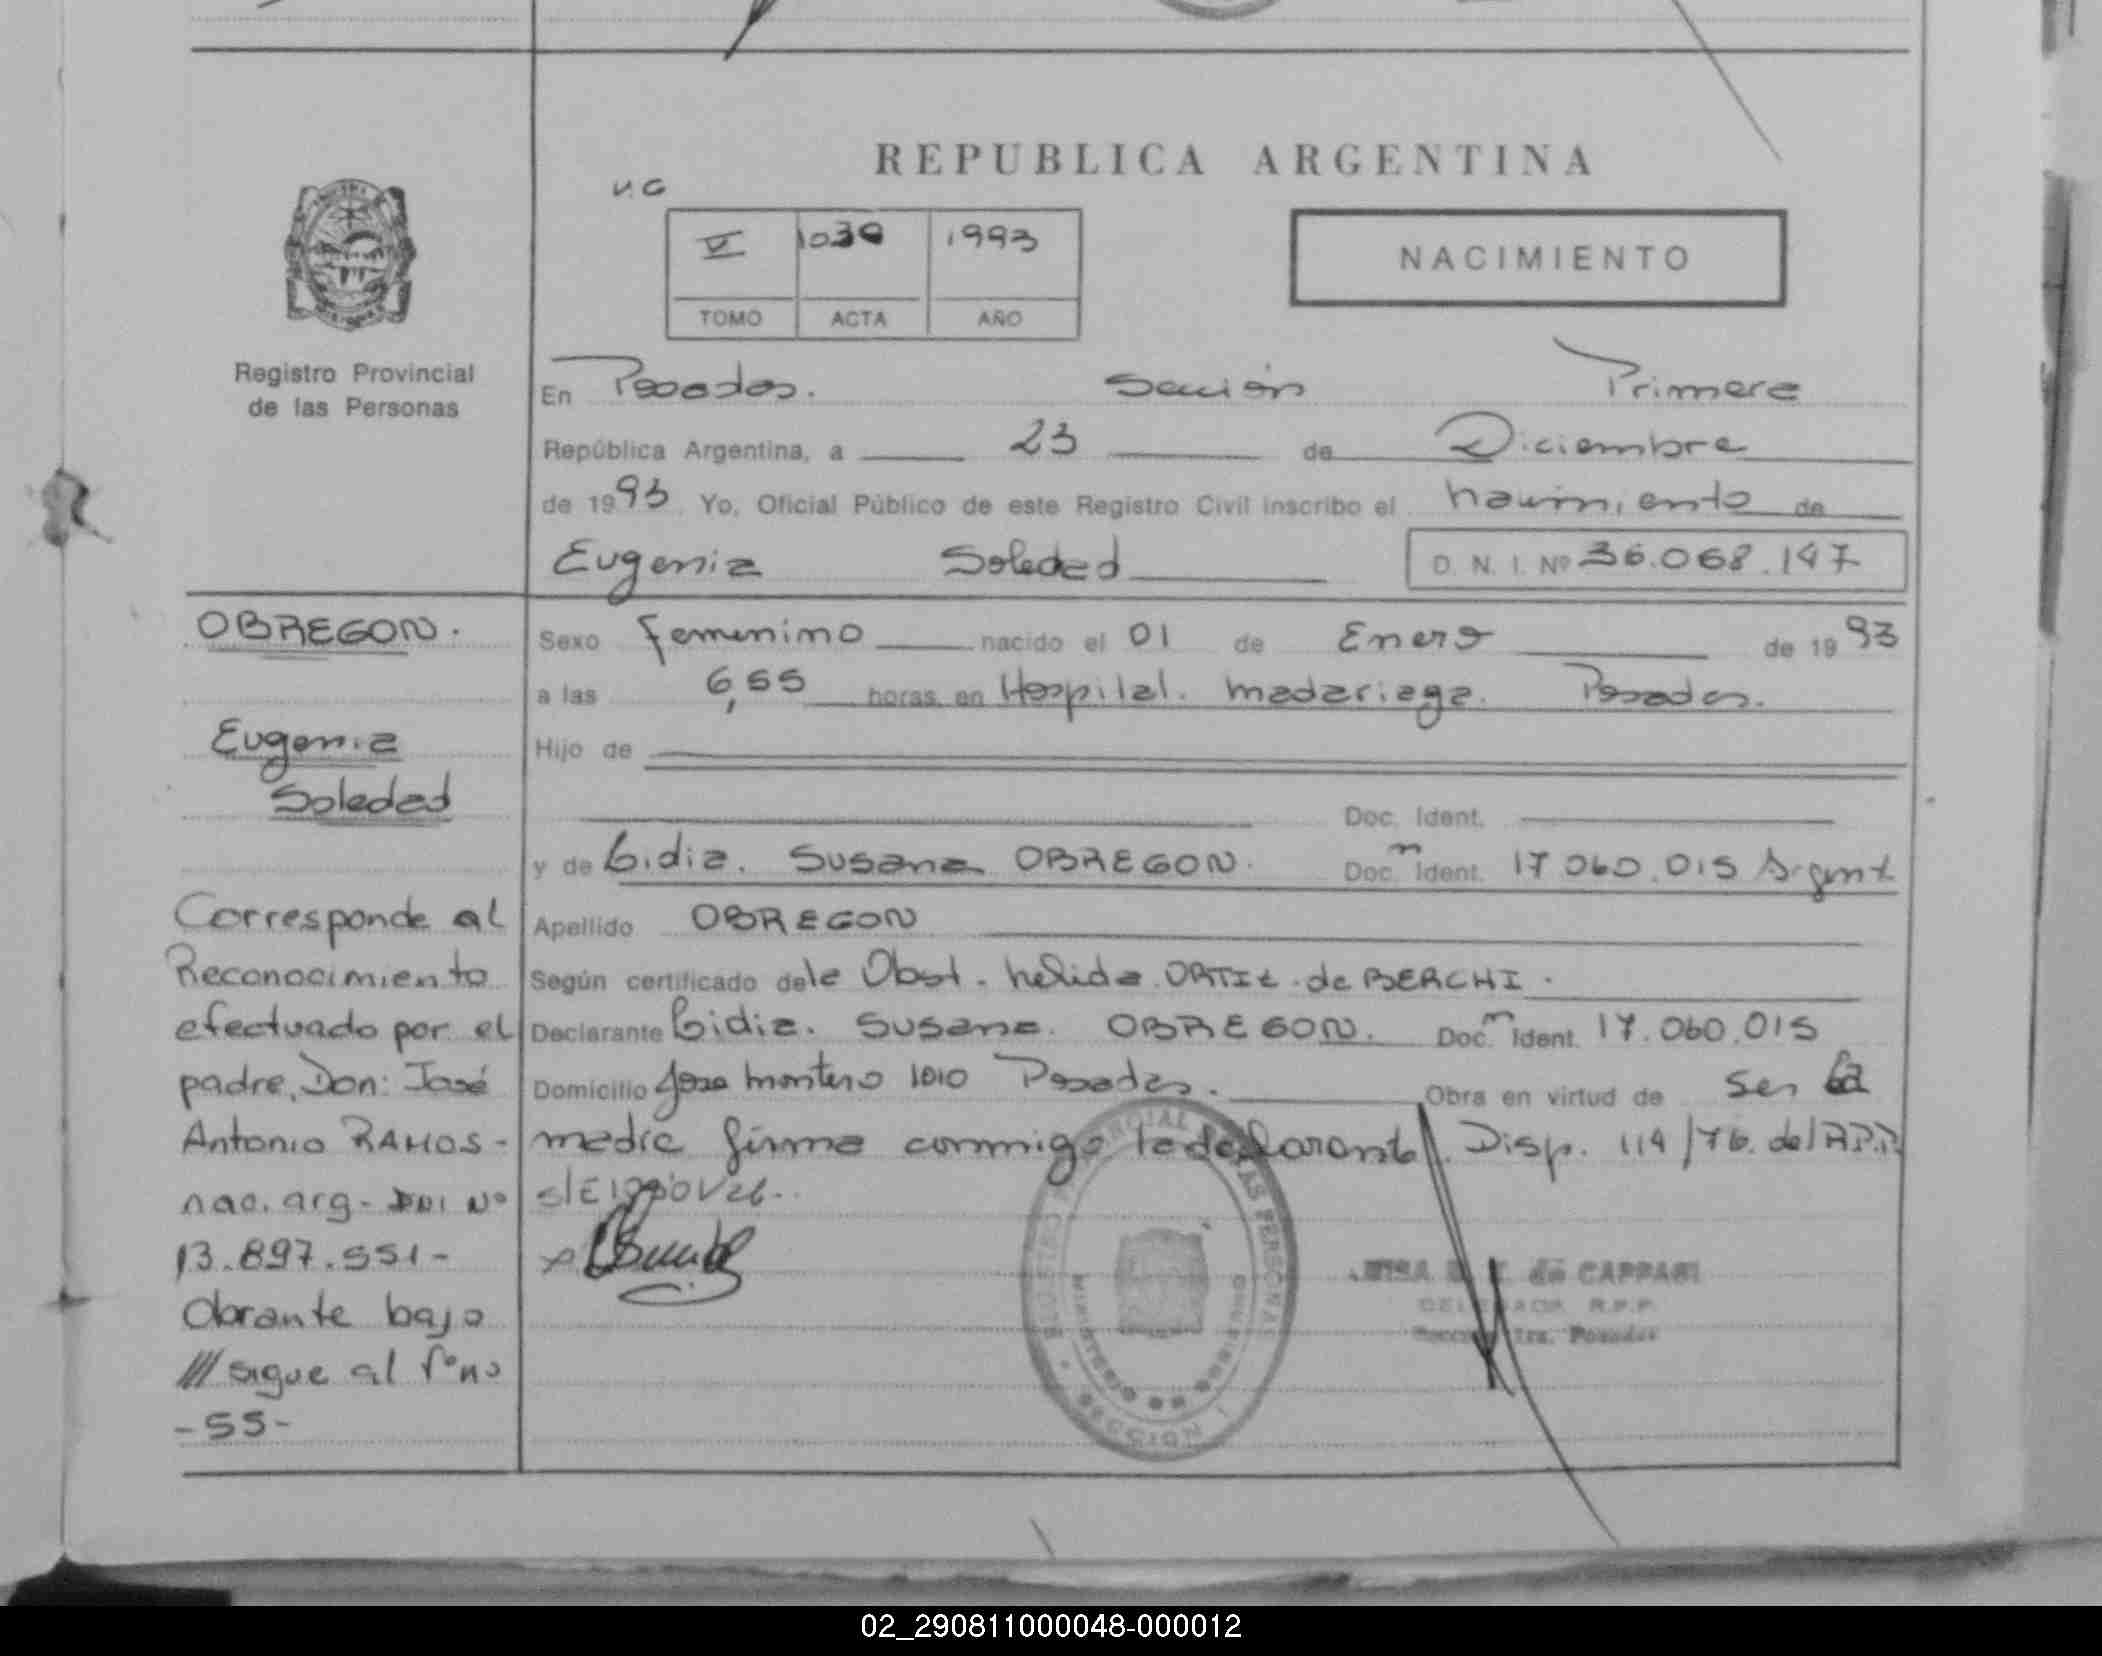 REPUBLICA ARGENTINA
V.G
V 1039 1993
TOMO ACTA AÑO
NACIMIENTO
Registro Provincial
de las Personas
En Posadas. Sección Primera
República Argentina, a 23 de Diciembre
de 1993. Yo, Oficial Público de este Registro Civil inscribo el nacimiento de
Eugenia Soledad D. N. I. Nº 36.068.147
OBREGON.
Eugenia
Soledad
Corresponde al
Reconocimiento
efectuado por el
padre, Don: José
Antonio RAMOS-
nac. arg- DNI Nº
13.897.551-
Obrante bajo
/// sigue al Fº nº
-55-
Sexo femenino nacido el 01 de Enero de 1993
a las 6,55 horas, en Hospital. Madariaga. Posadas.
Hijo de
Doc. Ident.
y de Lidia. Susana OBREGON. Doc. Ident. 17.060.015 Argent
Apellido OBREGON
Según certificado de la Obst. Nelida ORTIZ de BERCHI.
Declarante Lidia. Susana. OBREGON. Doc. Ident. 17.060.015
Domicilio Jose Montero 1010 Posadas. Obra en virtud de ser la
madre firma conmigo la declarante. Disp. 114/76. del R.P.P.
de CAPPARI
DELEGADA R.P.P.
1ra. Posadas
SECCION 1
02_290811000048-000012